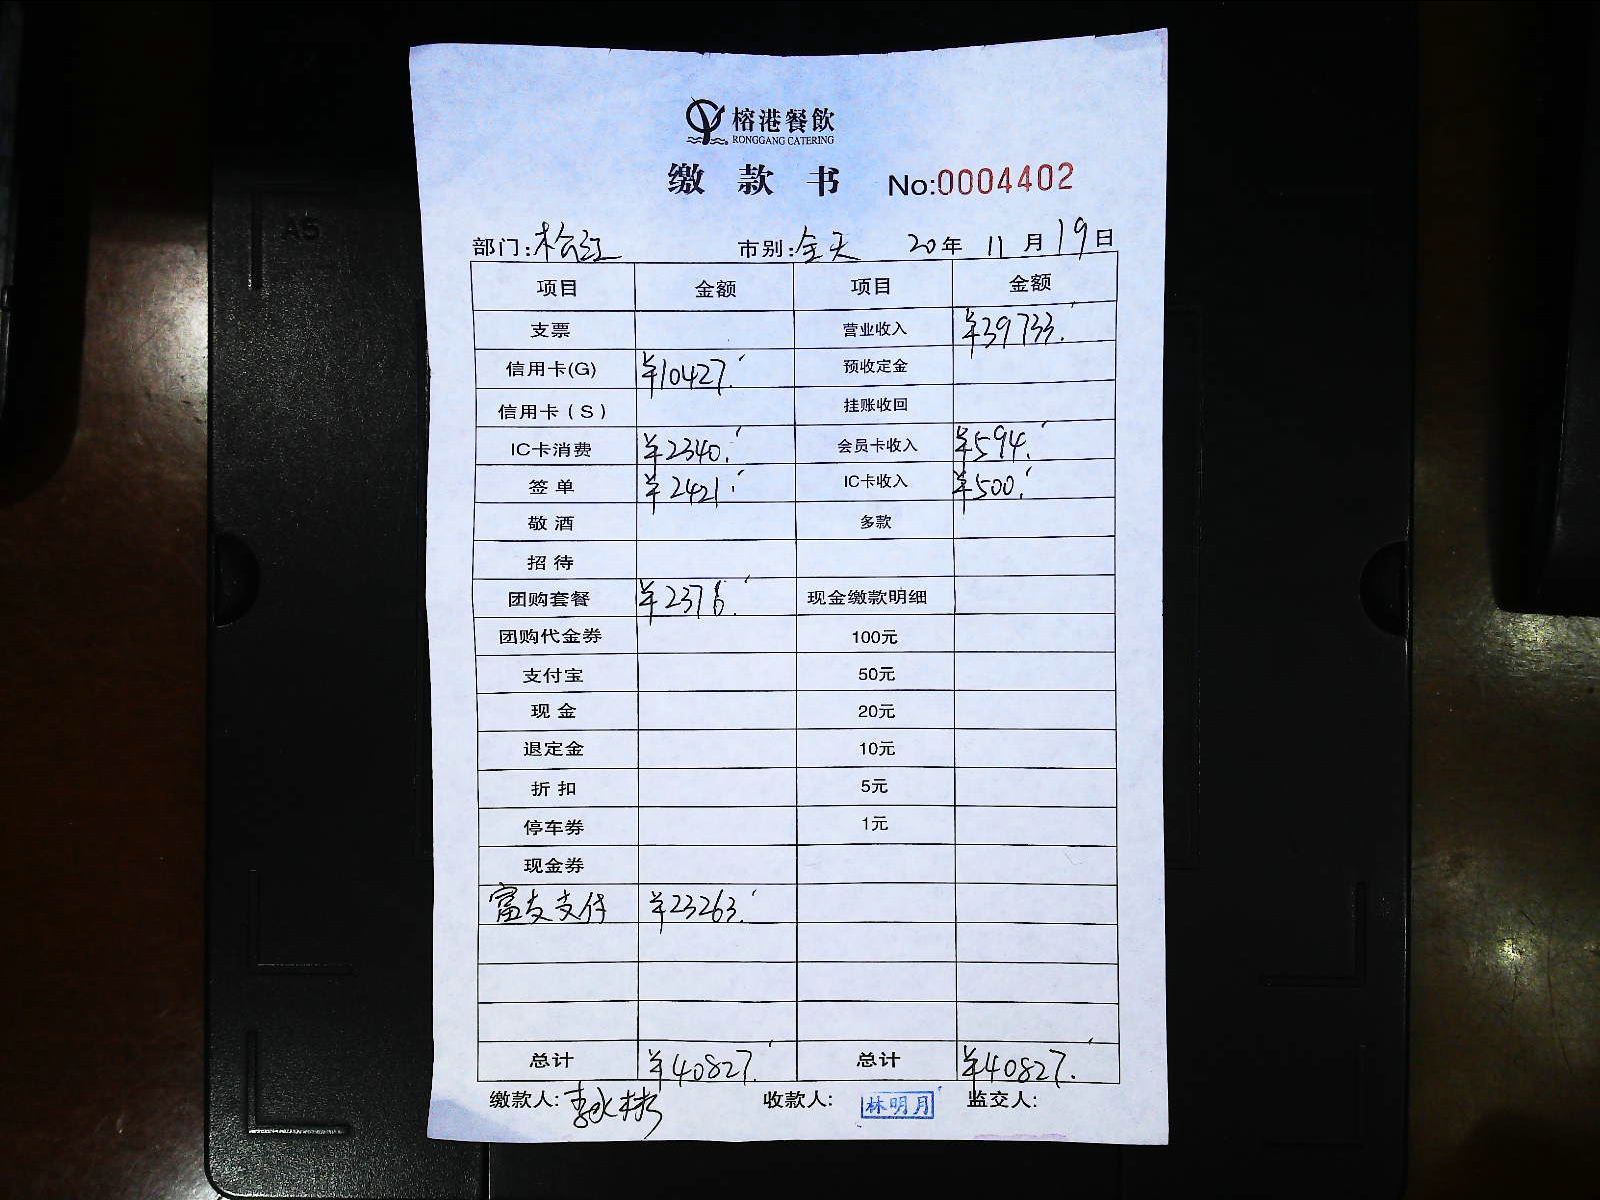 榕港餐飲
RONGGANG CATERING
缴款书 No:0004402
部门:松江 市别:全天 20年 11月 19日
项目 金额 项目 金额
支票 营业收入 ¥39733.
信用卡(G) ¥10427. 预收定金
信用卡(S) 挂账收回
IC卡消费 ¥2340. 会员卡收入 ¥594.
签单 ¥2421. IC卡收入 ¥500.
敬酒 多款
招待
团购套餐 ¥2376. 现金缴款明细
团购代金券 100元
支付宝 50元
现金 20元
退定金 10元
折扣 5元
停车券 1元
现金券
富友支付 ¥23263.
总计 ¥40827. 总计 ¥40827.
缴款人: 收款人: 林明月 监交人:
A5